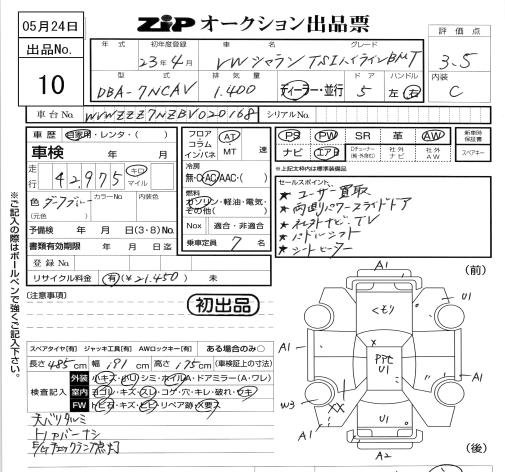 05月24日
ZIP オークション出品票
評価点
3.5
出品No.
10
年式 初年度登録 車名 グレード
23年4月 VWシャラン TSIハイラインBMT
内装
C
型式 排気量 ドア ハンドル
DBA-7NCAV 1.400 ディーラー・並行 5 左 右
車台No. WVWZZZ7NZBV020168 シリアルNo.
車歴 自家用・レンタ・( )
車検 年 月
走行 42,975 キロ マイル
色 ダークブルー カラーNo. 内装色
(元色)
予備検 年 月 日(3・8)No.
書類有効期限 年 月 日迄
登録No.
リサイクル料金 有(¥21.450) 未
フロア コラム インパネ AT・MT 速
冷房
無・C・AC・AAC・( )
燃料
ガソリン・軽油・電気・その他( )
Nox 適合・非適合
乗車定員 7 名
PS PW SR 革 AW 新車時保証書
ナビ エアB Dチューナー(純・外含む) 社外ナビ 社外AW スペアキー
※上記太枠内は標準装備品
セールスポイント
★ユーザー買取
★両側パワースライドドア
★ナビ、TV
★パドルシフト
★シートヒーター
※ご記入の際はボールペンで強くご記入下さい。
(注意事項)
初出品
スペアタイヤ[有] ジャッキ工具[有] AWロックキー[有] ある場合のみ○
長さ485cm 幅191cm 高さ175cm (車検証上の寸法)
検査記入
外装 小キズ・小凹・シミ・ホイルA・ドアミラー(A・ワレ)
室内 ヨゴレ・キズ・スレ・コゲ・穴・キレ・破れ・ウキ
FW トビ石・キズ・ヒビ・リペア跡・X要ス
天バリタルミ
トノカバーナシ
E/gチェックランプ点灯
(前)
A1
U1
くもり
A1
A1
X
PアセU1
A1
W3
XX
A1
U1
U1
A2
(後)